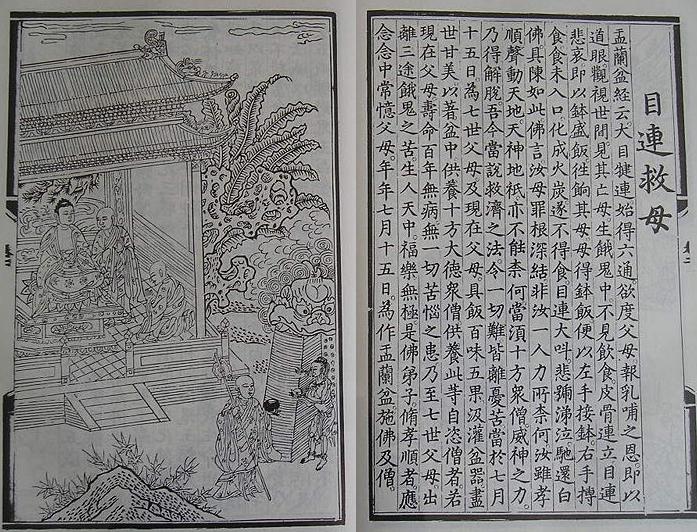 目連救母
盂蘭盆經云大目犍連始得六通欲度父母報乳哺之恩即以
道眼觀視世間見其亡母生餓鬼中不見飲食皮骨連立目連
悲哀即以鉢盛飯徃餉其母母得鉢飯便以左手接鉢右手摶
食食未入口化成火炭遂不得食目連大呌悲號涕泣馳還白
佛具陳如此佛言汝母罪根深結非汝一人力所柰何汝雖孝
順聲動天地天神地祇亦不能柰何當須十方衆僧威神之力
乃得解脫吾今當說救濟之法令一切難皆離憂苦當於七月
十五日為七世父母及現在父母具飯百味五果汲灌盆器盡
世甘美以著盆中供養十方大德衆僧供養此等自恣僧者若
現在父母壽命百年無病無一切苦惱之患乃至七世父母出
離三途餓鬼之苦生人天中福樂無極是佛弟子脩孝順者應
念念中常憶父母年年七月十五日為作盂蘭盆施佛及僧